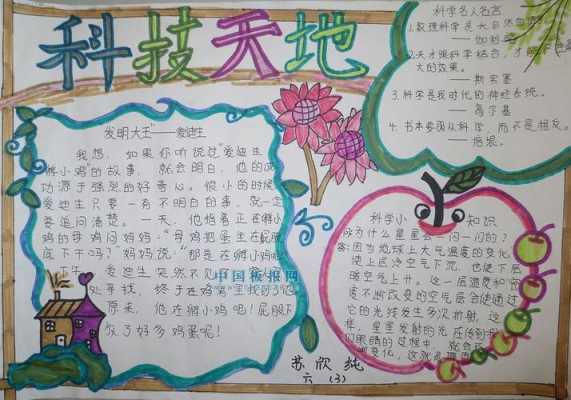 科技天地
发明大王"——爱迪生
我想,如果你听说过"爱迪生
孵小鸡"的故事,就会明白,他的成
功源于强烈的好奇心。很小的时候
爱迪生只要一有不明白的事,就一定
要追问清楚。一天,他指着正在孵小
鸡的母鸡问妈妈:"母鸡把蛋坐在屁股
底下干吗?"妈妈说:"那是在孵小鸡呢
爱迪生突然不见了
处寻找,终于在鸡窝里找到了他
原来,他在孵小鸡呢!屁股下
放了好多鸡蛋呢!
中国板报网
科学名人名言
1.数理科学是大自然
——伽利略
2.天才跟科学结合,才能
大的效果。
——斯宾塞
3.科学是我时代的神经系统。
——高尔基
4.书本要服从科学,而不是相反。
——培根。
科学小知识
为什么星星会一闪一闪的?
答:因为地球上大气温度的变化,
使上层冷空气下沉,也使下层
暖空气上升。这一层温度和密
度不断改变的空气层会使通过
它的光线发生多次折射,这
样,星星发射的光在传到
们眼睛的过程中,就会
变化,这就是
苏欣纯
六(3)